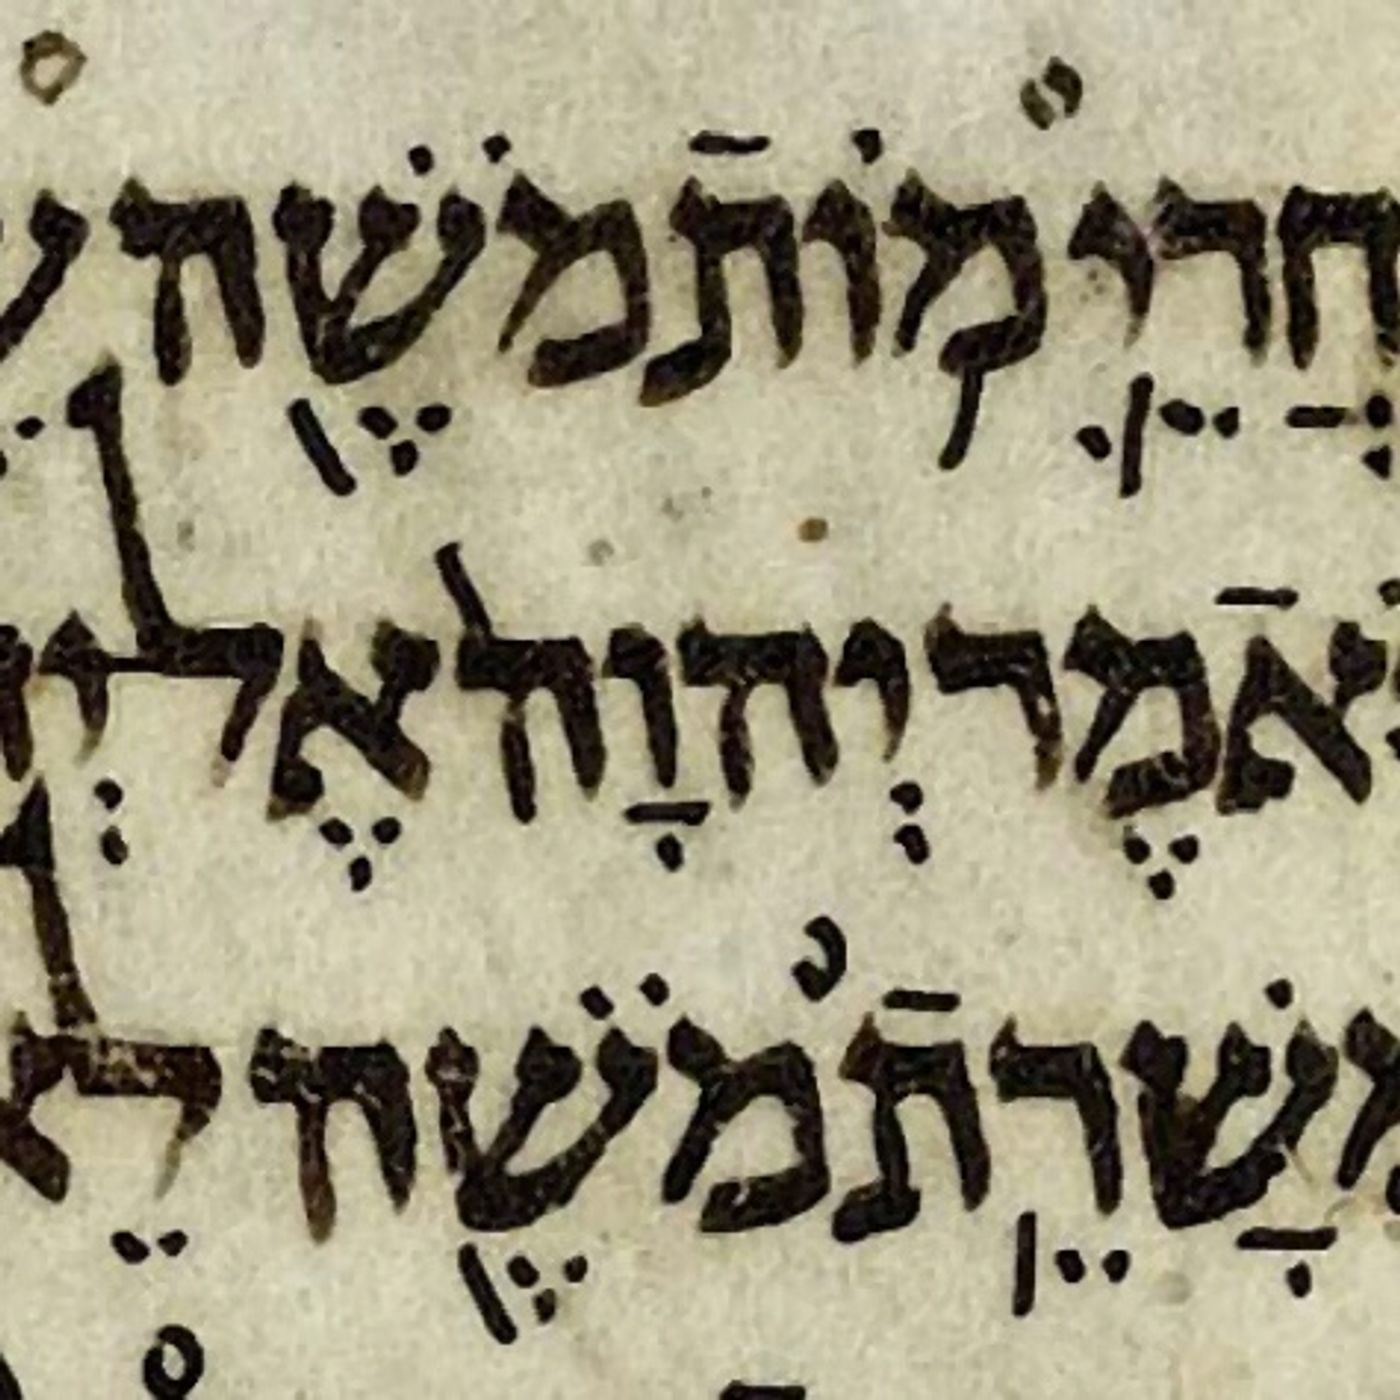 חֲרֵ֛י מ֥וֹתֿ מֹשֶׁ֖ה ע
יֹאֿמֶר יְהוָה אֶל יְ
משָׁרֵ֥תֿ מֹשֶׁ֖ה לֵא